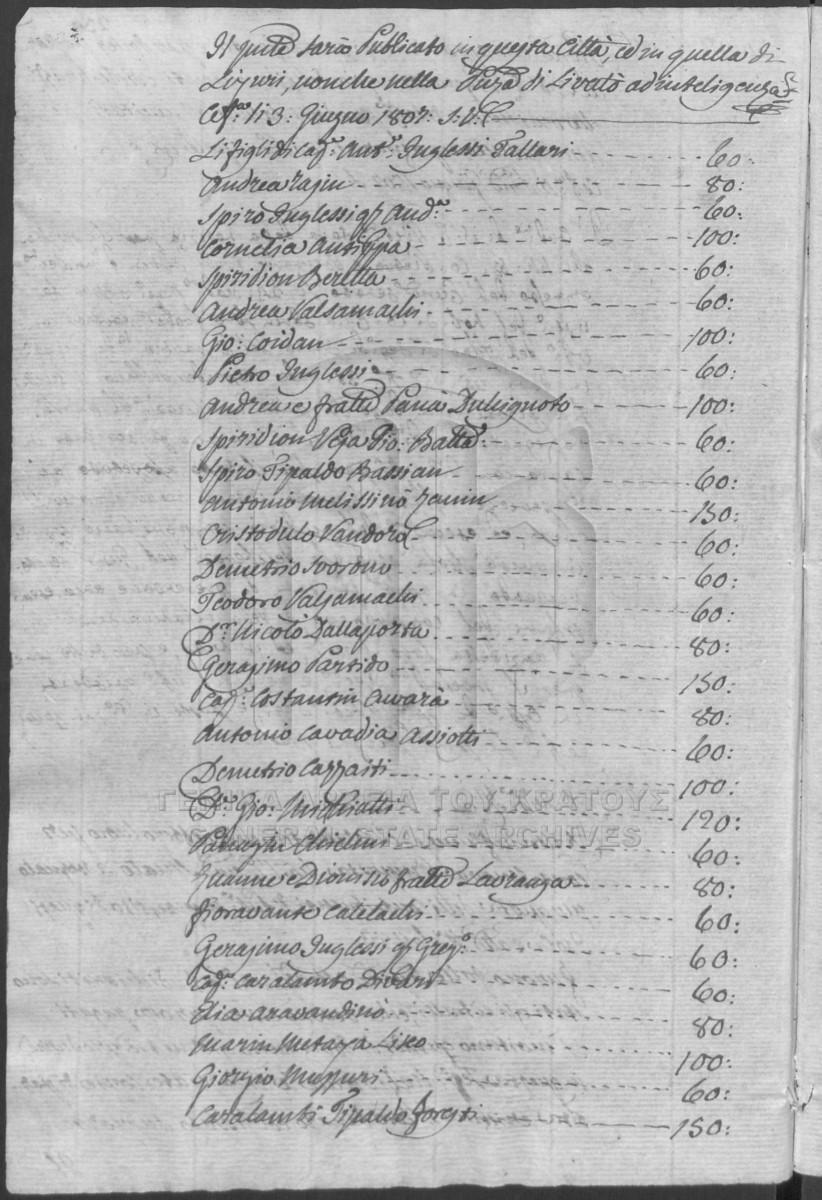 Il pnte sarà Publicato in questa Città, ed in quella di
Lixuri, nonche nella Piaza di Livatò ad inteligenza
Ceffa: li 3: Giugno 1807: S: V:
Li figli di Cap: Ant: Inglessi Fallari 60:
Andrea Razin 80:
Spiro Inglessi qf And: 60:
Cornelia Antippa 100:
Spiridion Beretta 60:
Andrea Valsamachi 60:
Gio: Coidan 100:
Pietro Inglessi 60:
Andrea e fratli Panà Dulcignoto 100:
Spiridion Veja Gio: Batta: 60:
Spiro Tipaldo Bassian 60:
Antonio Melissinò Zanin 150:
Cristodulo Vandoro 60:
Demetrio Svorono 60:
Teodoro Valsamachi 60:
Dr: Nicolò Dallaporta 80:
Gerasimo Partido 150:
Cap: Costantin Avarà 80:
Antonio Cavadia Assiotti 60:
Demetrio Cazzaiti 100:
Dr: Gio: Micheatti 120:
60:
Zuanne e Dionisio fratli Lavranga 80:
Fioravante Calelachi 60:
Gerasimo Inglessi qf Greg: 60:
Cap: Caralambo Divari 60:
Elia Aravandinò 80:
Marin Metaxà Lixo 100:
Giorgio Mussuri 60:
Caralambi Tipaldo Foresti 150:
ΓΕΝΙΚΑ ΑΡΧΕΙΑ ΤΟΥ ΚΡΑΤΟΥΣ
GENERAL STATE ARCHIVES